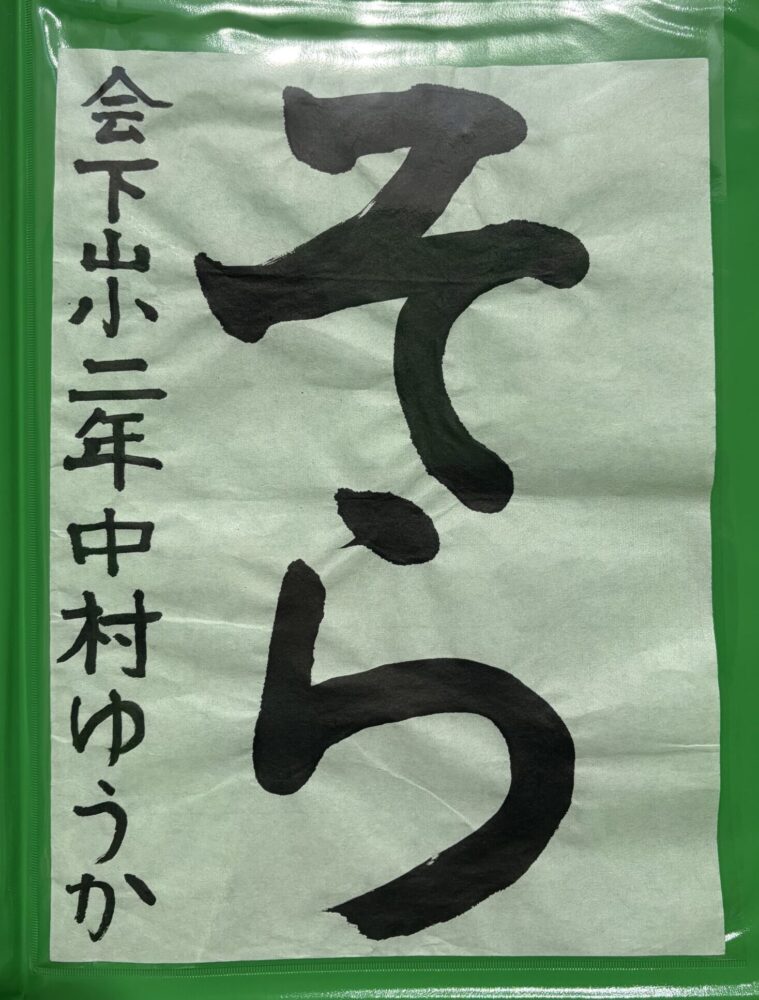 そら
会下山小二年中村ゆうか